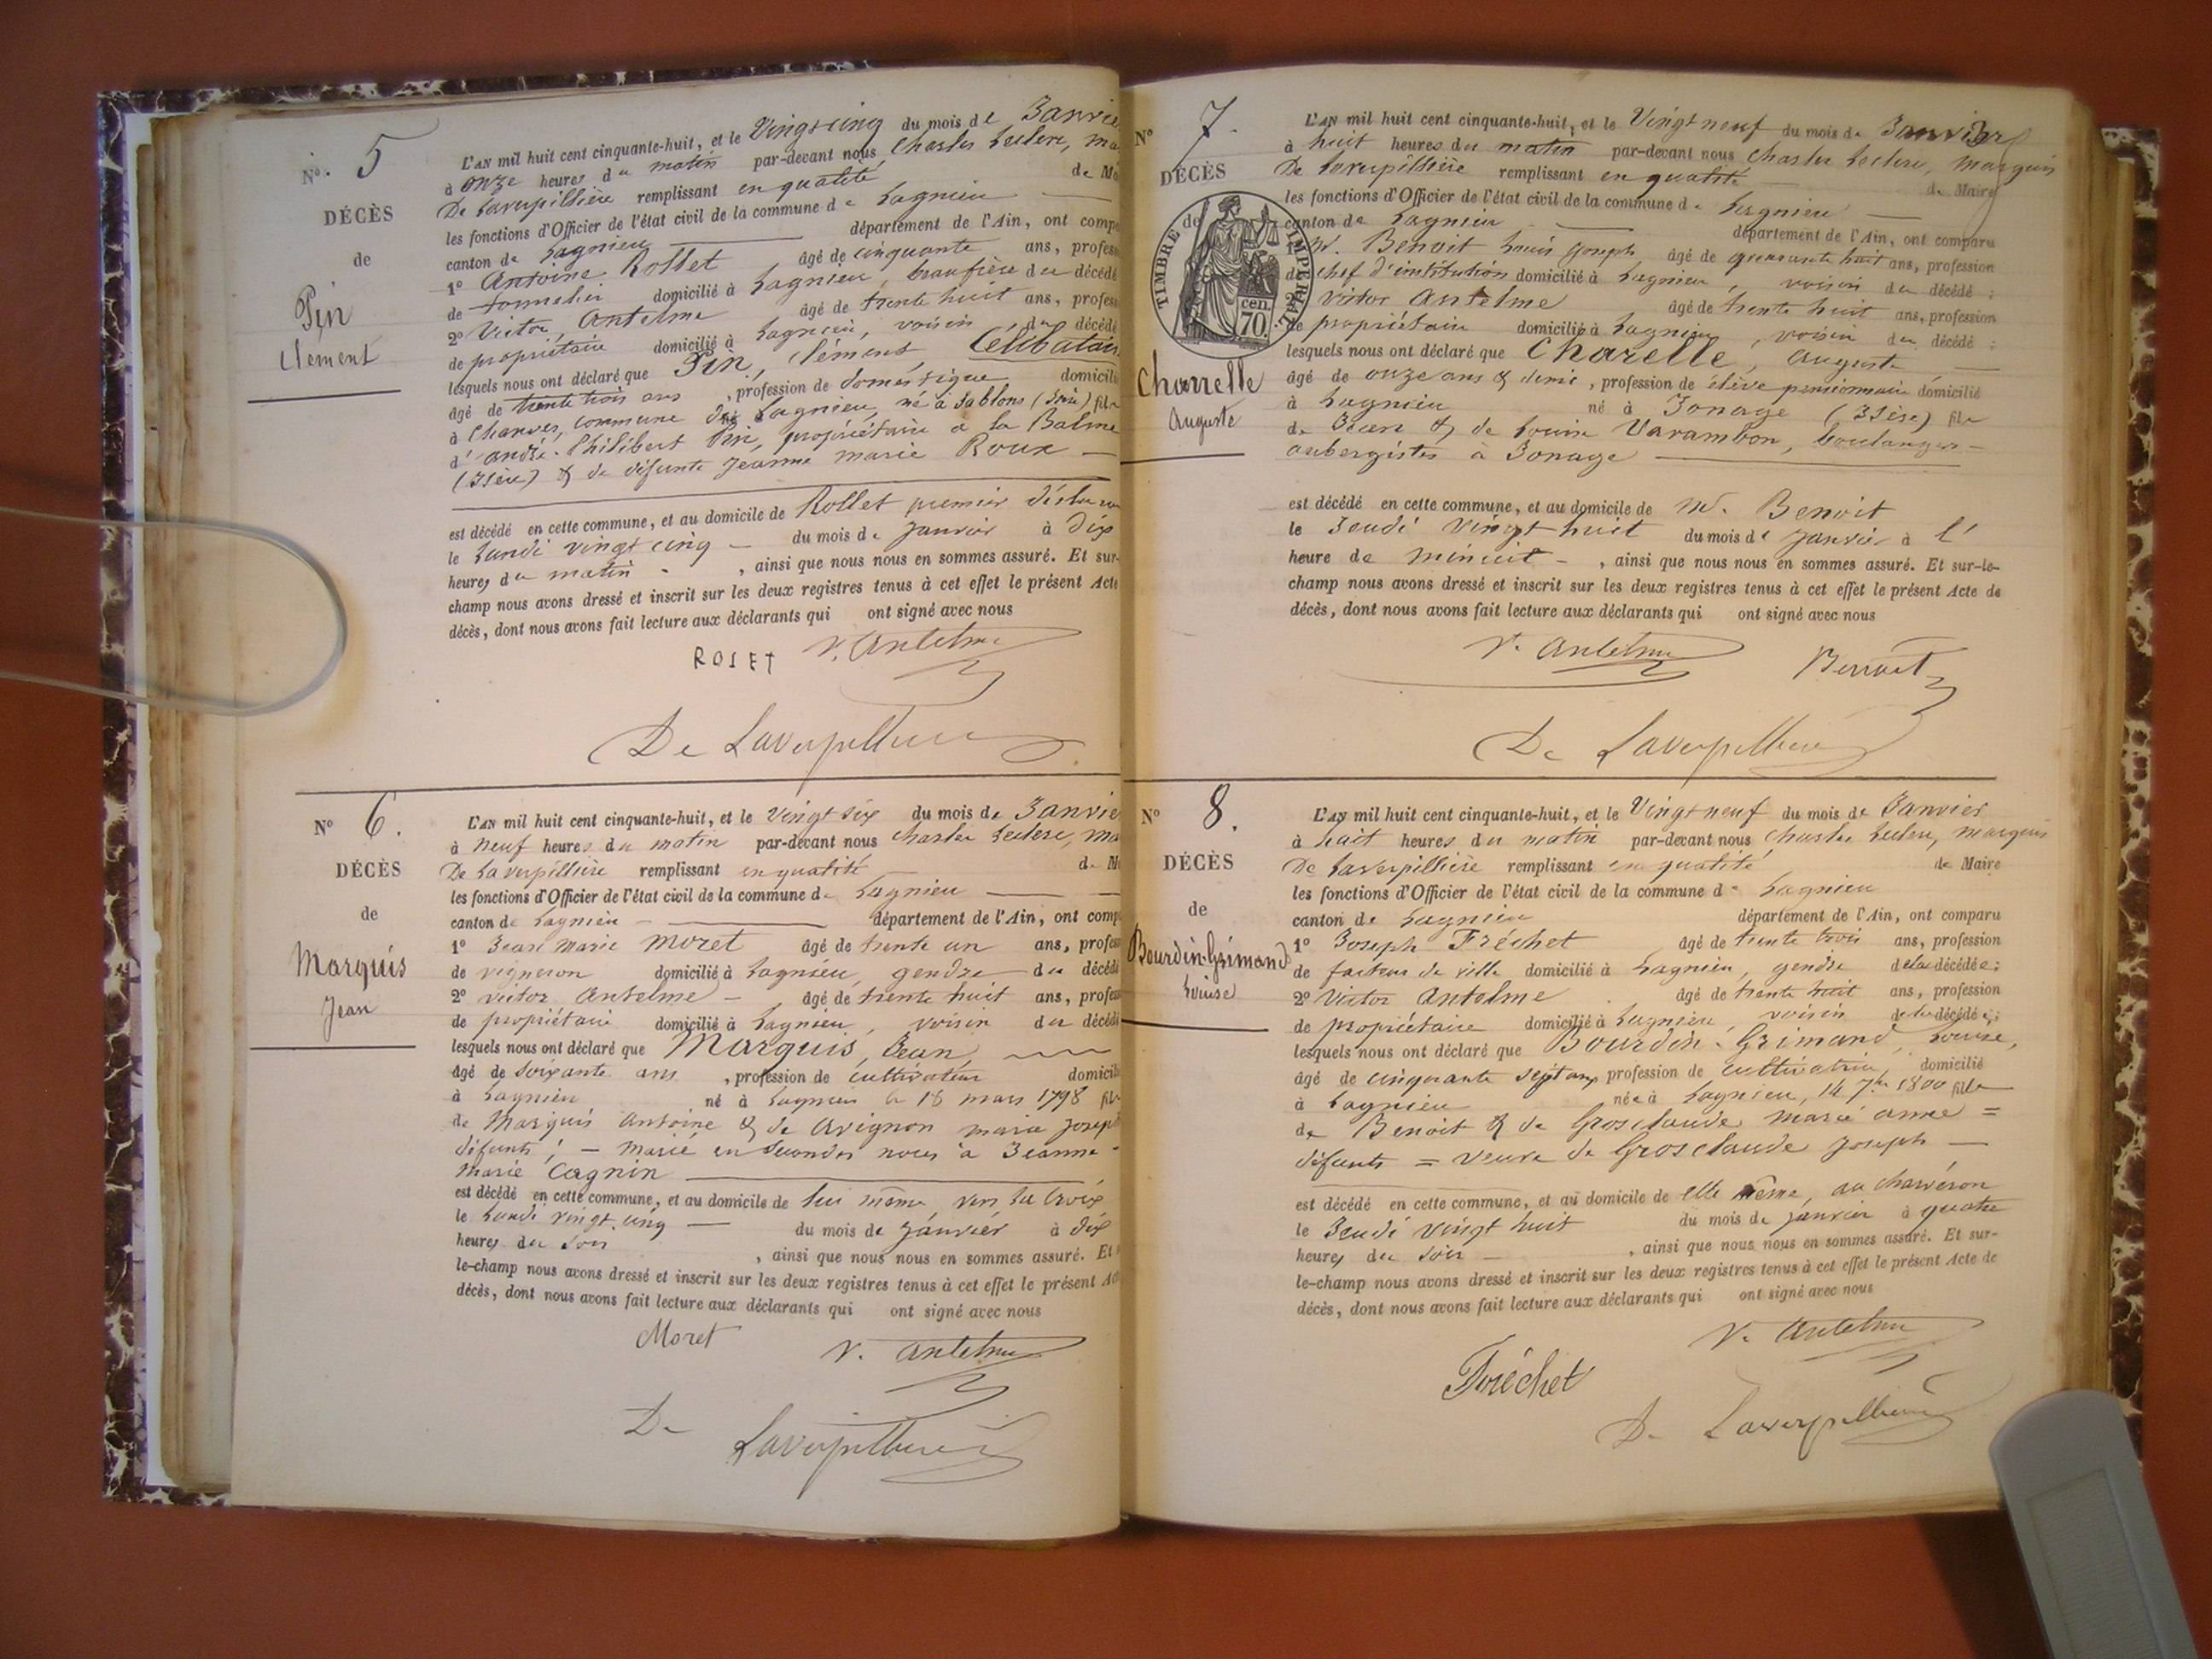 N° 5
DÉCÈS
de
Pin
Clément
L'AN mil huit cent cinquante-huit, et le Vingt cinq du mois de Janvie
à onze heures du matin par-devant nous Charles Leclerc, ma
De Laverpillière remplissant en qualité de Ma
les fonctions d'Officier de l'état civil de la commune de Lagnieu
canton de Lagnieu département de l'Ain, ont comp
1° Antoine Rollet âgé de cinquante ans, profess
de tonnelier domicilié à Lagnieu, beaufrère du décédé
2° Victor Antelme âgé de trente huit ans, profess
de propriétaire domicilié à Lagnieu, voisin du décédé
lesquels nous ont déclaré que Pin, Clément, Célibatair
âgé de trente trois ans, profession de domestique domicili
à Charves, commune de Lagnieu, né à Sablons (Isère) fils
d'andré-Philibert Pin, propriétaire à la Balme
(Isère) & de défunte Jeanne marie Roux
est décédé en cette commune, et au domicile de Rollet premier déclara
le Lundi vingt cinq du mois de Janvier à dix
heures du matin, ainsi que nous nous en sommes assuré. Et sur-
champ nous avons dressé et inscrit sur les deux registres tenus à cet effet le présent Acte
décès, dont nous avons fait lecture aux déclarants qui ont signé avec nous
ROLET V. Antelme
De Laverpillière
N° 6.
DÉCÈS
de
Marquis
Jean
L'AN mil huit cent cinquante-huit, et le Vingt six du mois de Janvie
à neuf heures du matin par-devant nous Charles Leclerc, ma
De Laverpillière remplissant en qualité de M
les fonctions d'Officier de l'état civil de la commune de Lagnieu
canton de Lagnieu département de l'Ain, ont comp
1° Jean Marie Moret âgé de trente un ans, profess
de vigneron domicilié à Lagnieu, gendre du décédé
2° Victor Antelme âgé de trente huit ans, profess
de propriétaire domicilié à Lagnieu, voisin du décédé
lesquels nous ont déclaré que Marquis, Jean,
âgé de soixante ans, profession de cultivateur domicili
à Lagnieu né à Lagnieu le 18 mars 1798 fils
de Marquis Antoine & de Avignon marie Joseph
défunts; - marié en secondes noces à Jeanne
marie Cagnin
est décédé en cette commune, et au domicile de lui même,
le Lundi vingt cinq du mois de Janvier à dix
heures du soir, ainsi que nous nous en sommes assuré. Et
le-champ nous avons dressé et inscrit sur les deux registres tenus à cet effet le présent Act
décès, dont nous avons fait lecture aux déclarants qui ont signé avec nous
Moret V. Antelme
De Laverpillière
N° 7.
DÉCÈS
de
TIMBRE IMPERIAL
70 cen.
Charrelle
Auguste
L'AN mil huit cent cinquante-huit, et le Vingt neuf du mois de Janvier
à huit heures du matin par-devant nous Charles Leclerc, marquis
De Laverpillière remplissant en qualité de Maire
les fonctions d'Officier de l'état civil de la commune de Lagnieu
canton de Lagnieu département de l'Ain, ont comparu
1° M. Benoit Louis Joseph âgé de quarante huit ans, profession
de chef d'institution domicilié à Lagnieu, voisin du décédé;
2° Victor Antelme âgé de trente huit ans, profession
de propriétaire domicilié à Lagnieu, voisin du décédé;
lesquels nous ont déclaré que Charelle, Auguste
âgé de onze ans & demi, profession de élève pensionnaire domicilié
à Lagnieu né à Jonage (Isère) fils
de & de Louise Varambon, boulangers-
aubergistes à Jonage
est décédé en cette commune, et au domicile de M. Benoit
le Jeudi vingt huit du mois de Janvier à l'
heure de minuit, ainsi que nous nous en sommes assuré. Et sur-le-
champ nous avons dressé et inscrit sur les deux registres tenus à cet effet le présent Acte de
décès, dont nous avons fait lecture aux déclarants qui ont signé avec nous
V. Antelme Benoit
De Laverpillière
N° 8.
DÉCÈS
de
Bourdin-Grimand
Louise
L'AN mil huit cent cinquante-huit, et le Vingt neuf du mois de Janvier
à huit heures du matin par-devant nous Charles Leclerc, marquis
De Laverpillière remplissant en qualité de Maire
les fonctions d'Officier de l'état civil de la commune de Lagnieu
canton de Lagnieu département de l'Ain, ont comparu
1° Joseph Fréchet âgé de trente trois ans, profession
de facteur de ville domicilié à Lagnieu, gendre de la décédée;
2° Victor Antelme âgé de trente huit ans, profession
de propriétaire domicilié à Lagnieu, voisin de la décédée;
lesquels nous ont déclaré que Bourdin-Grimand, Louise,
âgé de cinquante sept ans, profession de cultivatrice, domicilié
à Lagnieu née à Lagnieu, 14 7bre 1800 fille
de Benoit & de Grosclaude marie anne =
défunts = veuve de Grosclaude Joseph
est décédé en cette commune, et au domicile de elle même, au charveron
le Jeudi vingt huit du mois de Janvier à quatre
heures du soir, ainsi que nous nous en sommes assuré. Et sur-
le-champ nous avons dressé et inscrit sur les deux registres tenus à cet effet le présent Acte de
décès, dont nous avons fait lecture aux déclarants qui ont signé avec nous
V. Antelme
Fréchet
De Laverpillière